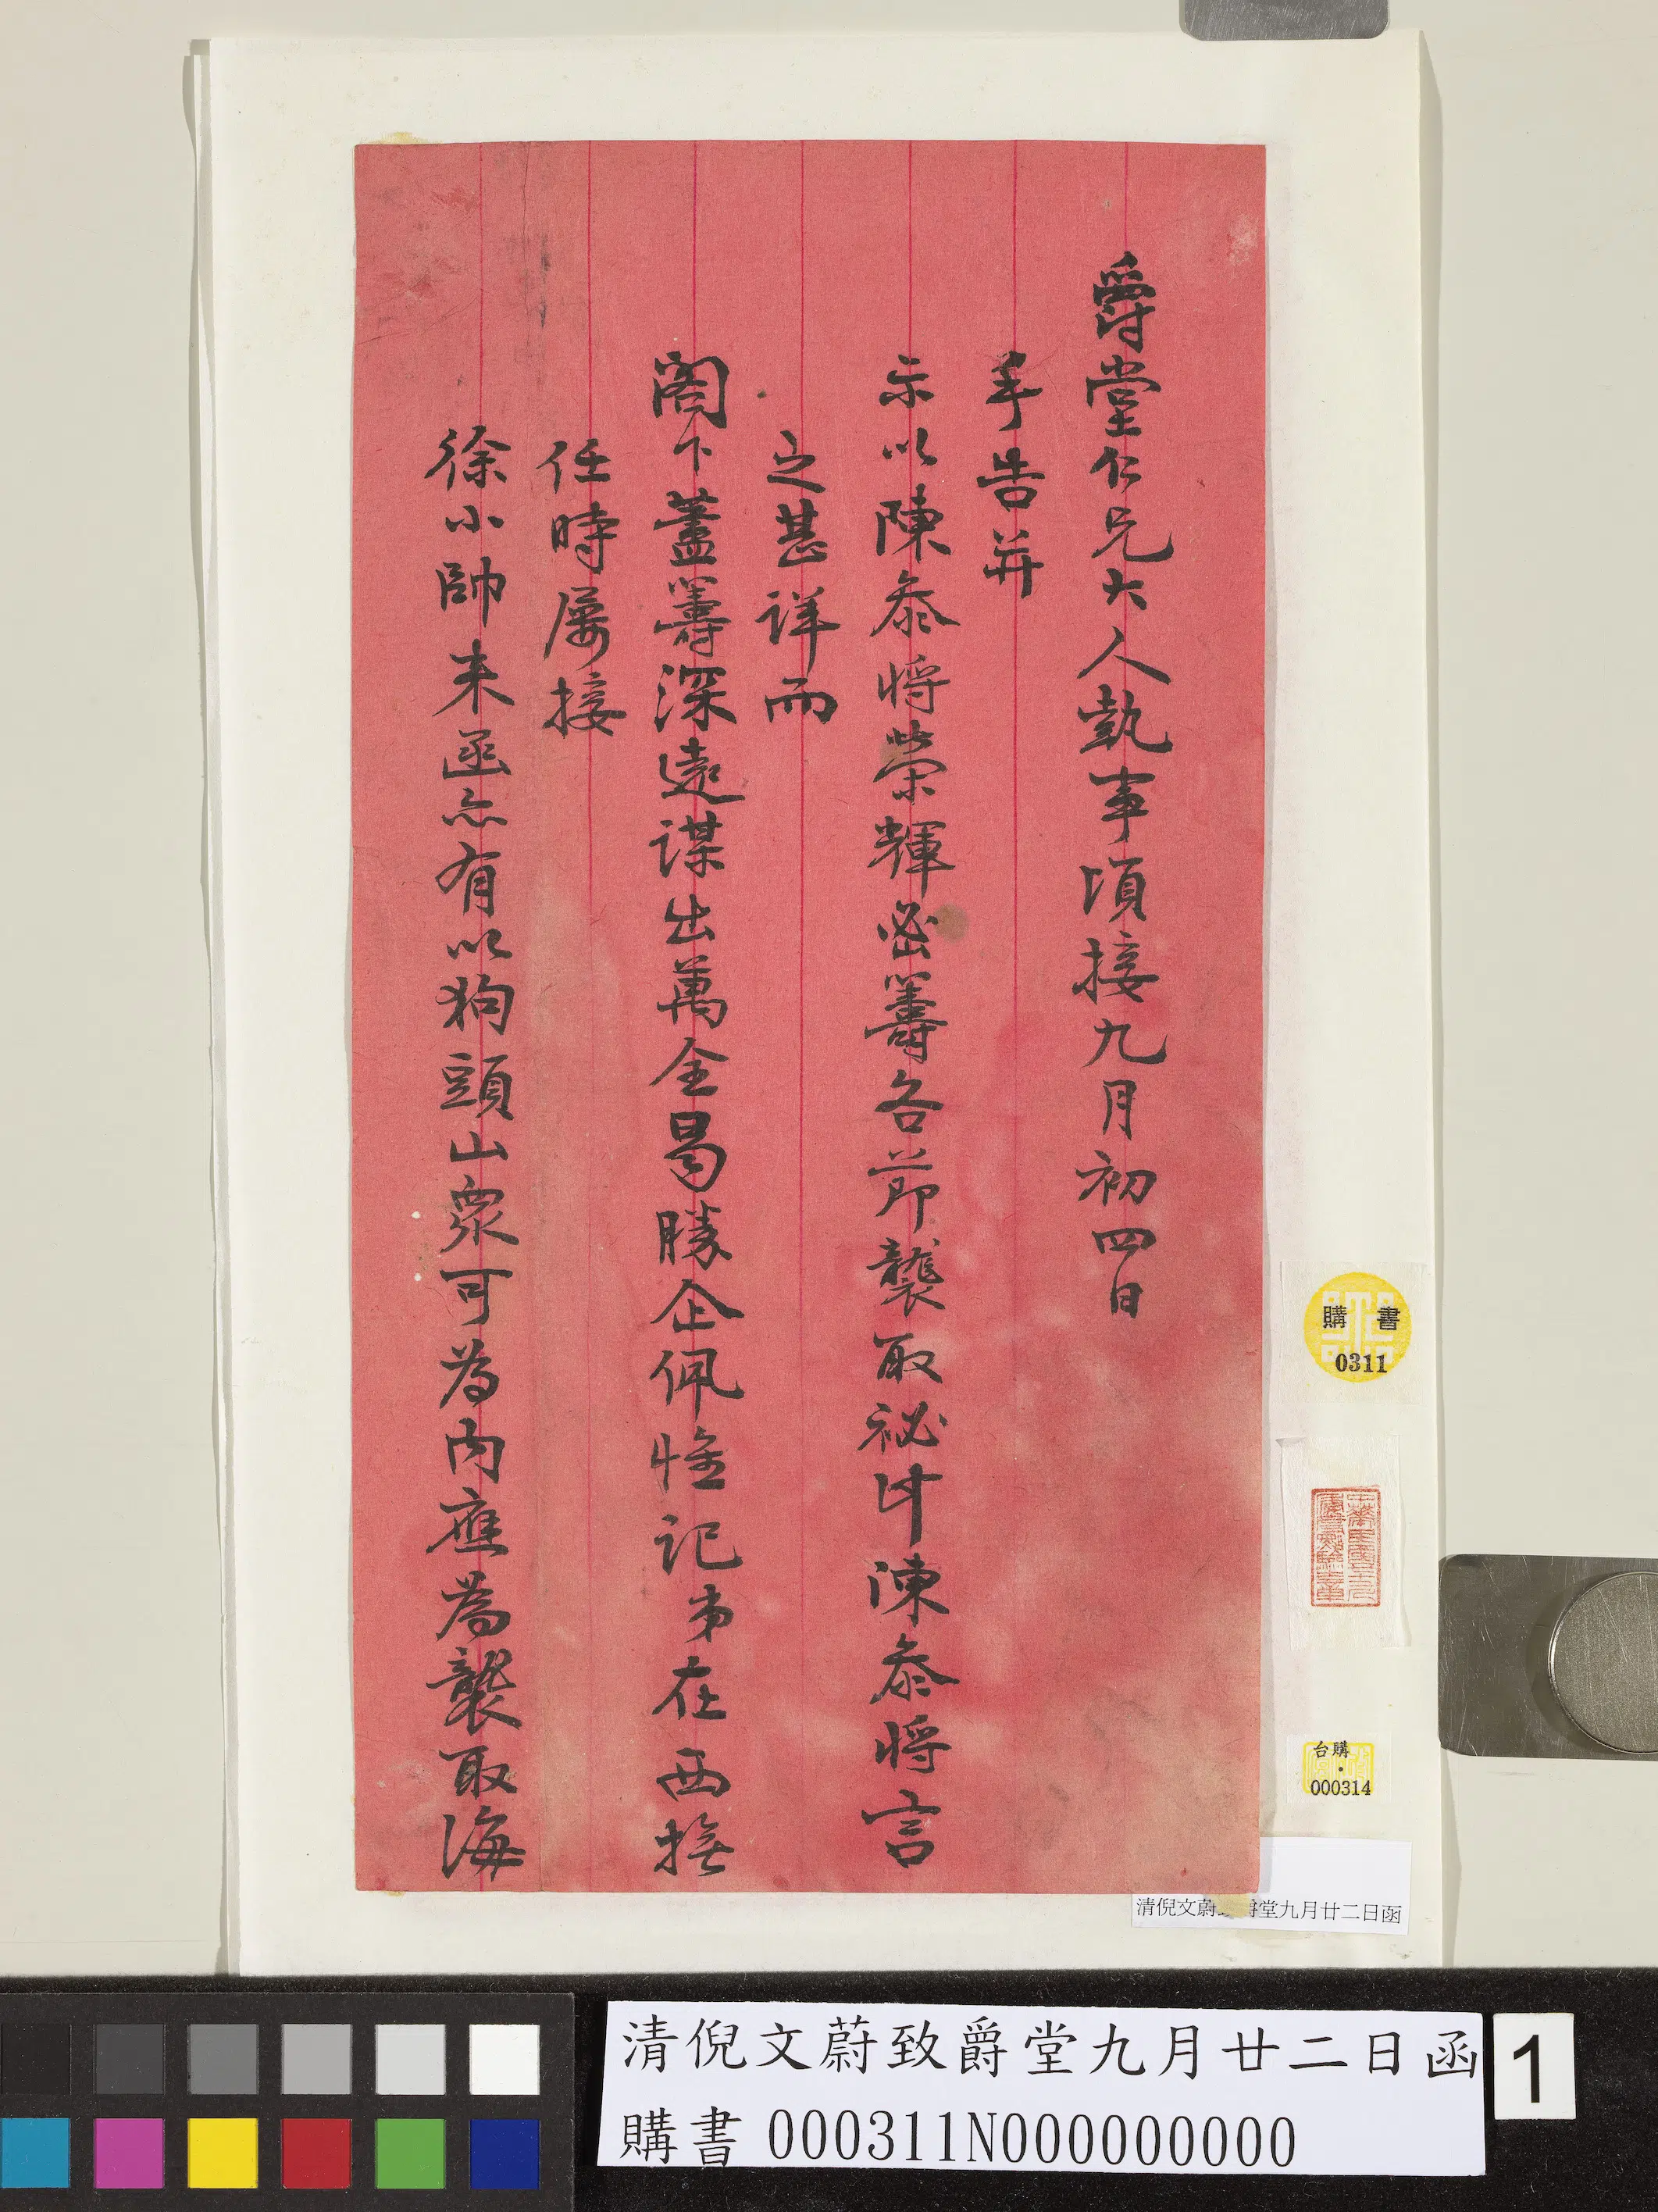 爵堂仁兄大人執事頃接九月初四日
手告并
示以陳叅將榮輝密籌各節襲取祕計陳叅將言
之甚詳而
閣下藎籌深遠謀出萬全曷勝企佩惟記弟在西撫
任時屡接
徐小帥来函亦有以狗頭山衆可為内應為襲取海
購書
0311
台購
000314
清倪文蔚 爵堂九月廿二日函
清倪文蔚致爵堂九月廿二日函
購書 000311N000000000
1